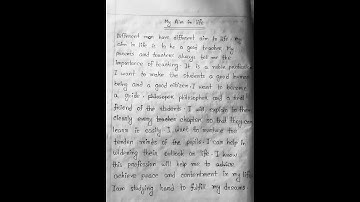 My Aim In life
Different man have different aim to life. My
aim in life is to be a good teacher. My
parents and teachers always tell me the
importance of teaching. It is a noble profession
I want to make the students a good human
being and a good citizen. I want to become
a guide, philosopher and a true
friend of the students. I will explain to them
clearly every chapter so that they can
learn it easily. I want to the
tender minds of the pupils. I can help in
widening their outlook on life. I know
this profession will help me to
achieve peace and contentment in my life.
I am studying hard to fulfill my dreams.